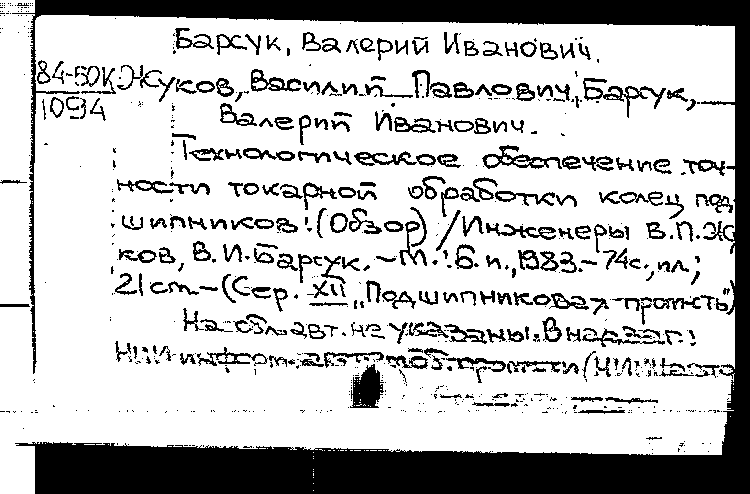 Барсук, Валерий Иванович.
84-БОК Жуков, Василий Павлович, Барсук,
1094 Валерий Иванович.
Технологическое обеспечение точ-
ности токарной обработки колец под-
шипников: (Обзор) / Инженеры В.П. Жу
ков, В. И. Барсук. – М.: Б. и., 1983. – 74 с., ил.;
21 см – (Сер. XII "Подшипниковая пром-сть")
На обл. авт. не указаны. В надзаг.:
НИИ информ. автомоб. пром-сти (НИИНавто